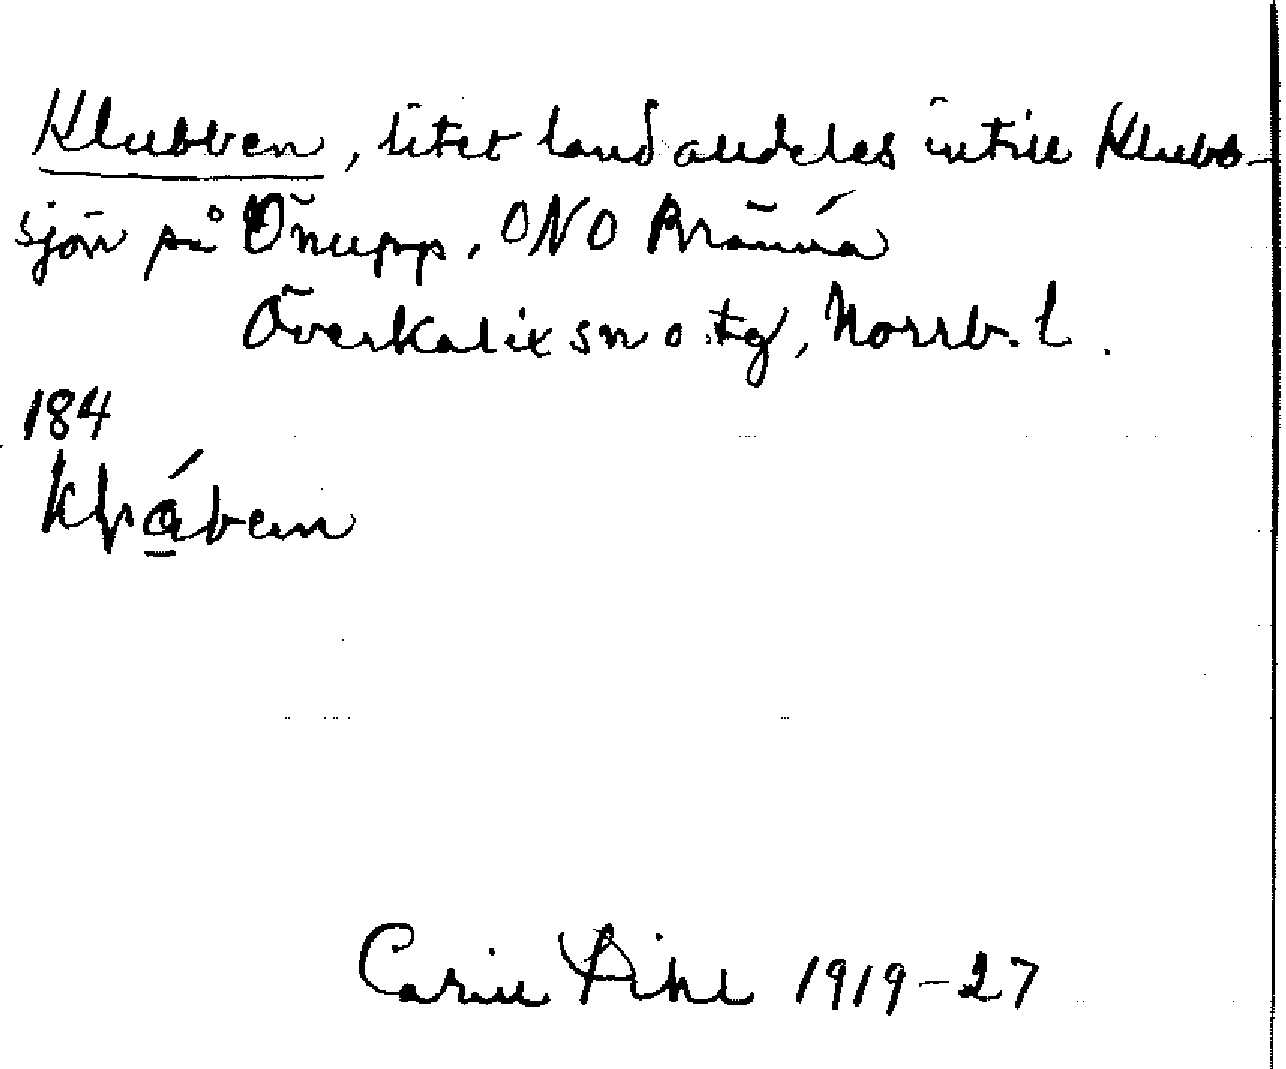 Klubben, litet land alldeles intill Klubb-
sjön på Önupp, ONO Bränna
Överkalix sn o. tg, Norrb. l.
184
Carin Pihl 1919-27